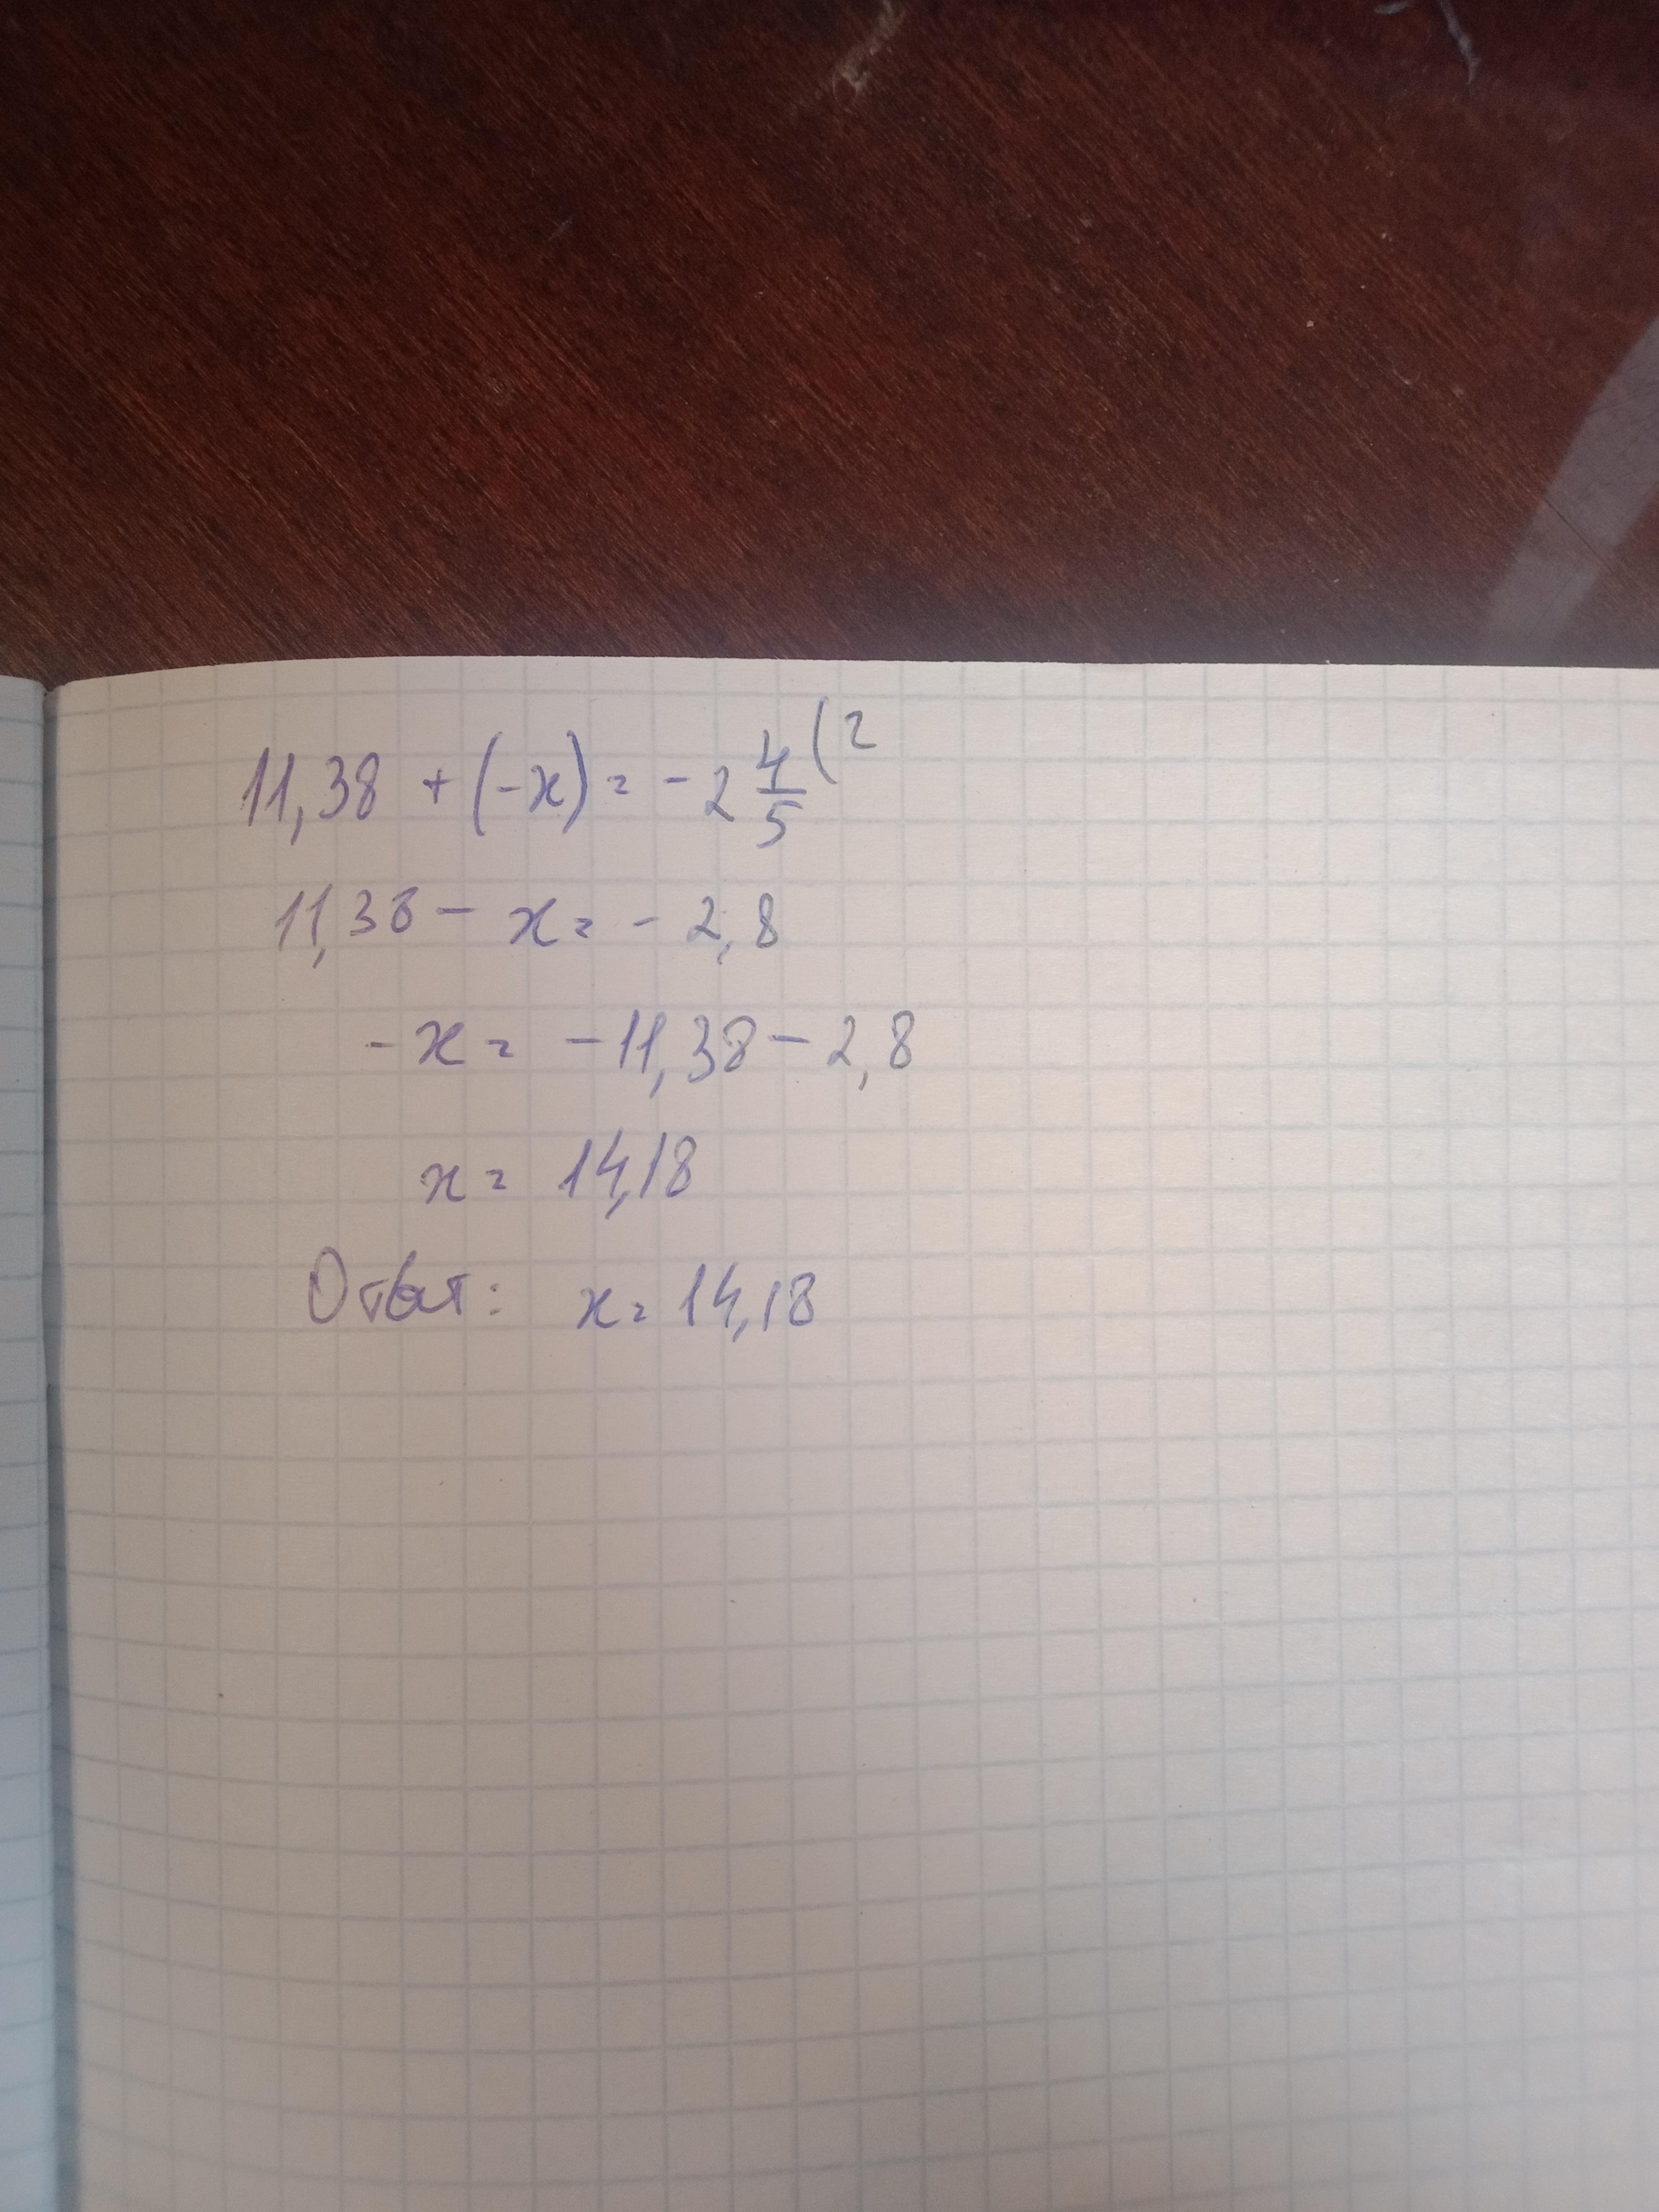 11,38 + (-x) = -2 4/5 (2
11,38 - x = - 2,8
- x = - 11,38 - 2,8
x = 14,18
Ответ: x = 14,18